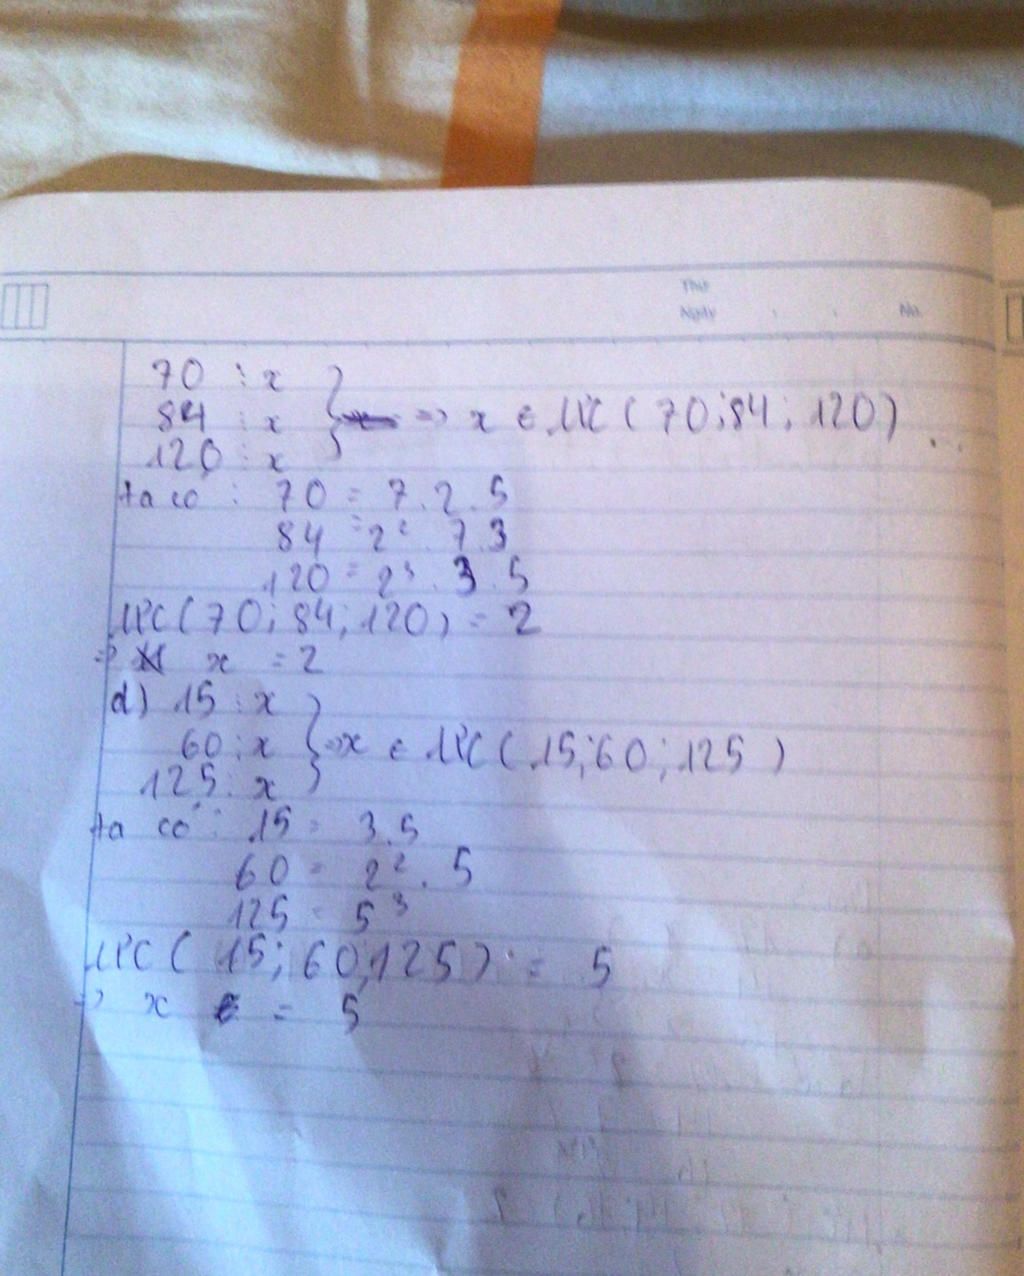 Thứ
Ngày No.
70 ⋮ x
84 ⋮ x } => x ∈ ƯC ( 70; 84; 120)
120 ⋮ x
ta có : 70 = 7.2.5
84 = 2². 7.3
120 = 2³. 3. 5
ƯC( 70; 84; 120) = 2
=> x = 2
d) 15 ⋮ x
60 ⋮ x } => x ∈ ƯC ( 15; 60; 125 )
125 ⋮ x
ta có : 15 = 3.5
60 = 2². 5
125 = 5³
ƯC ( 15; 60; 125) = 5
=> x = 5